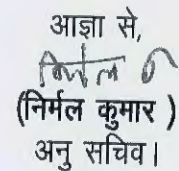 आज्ञा से,
(निर्मल कुमार )
अनु सचिव।